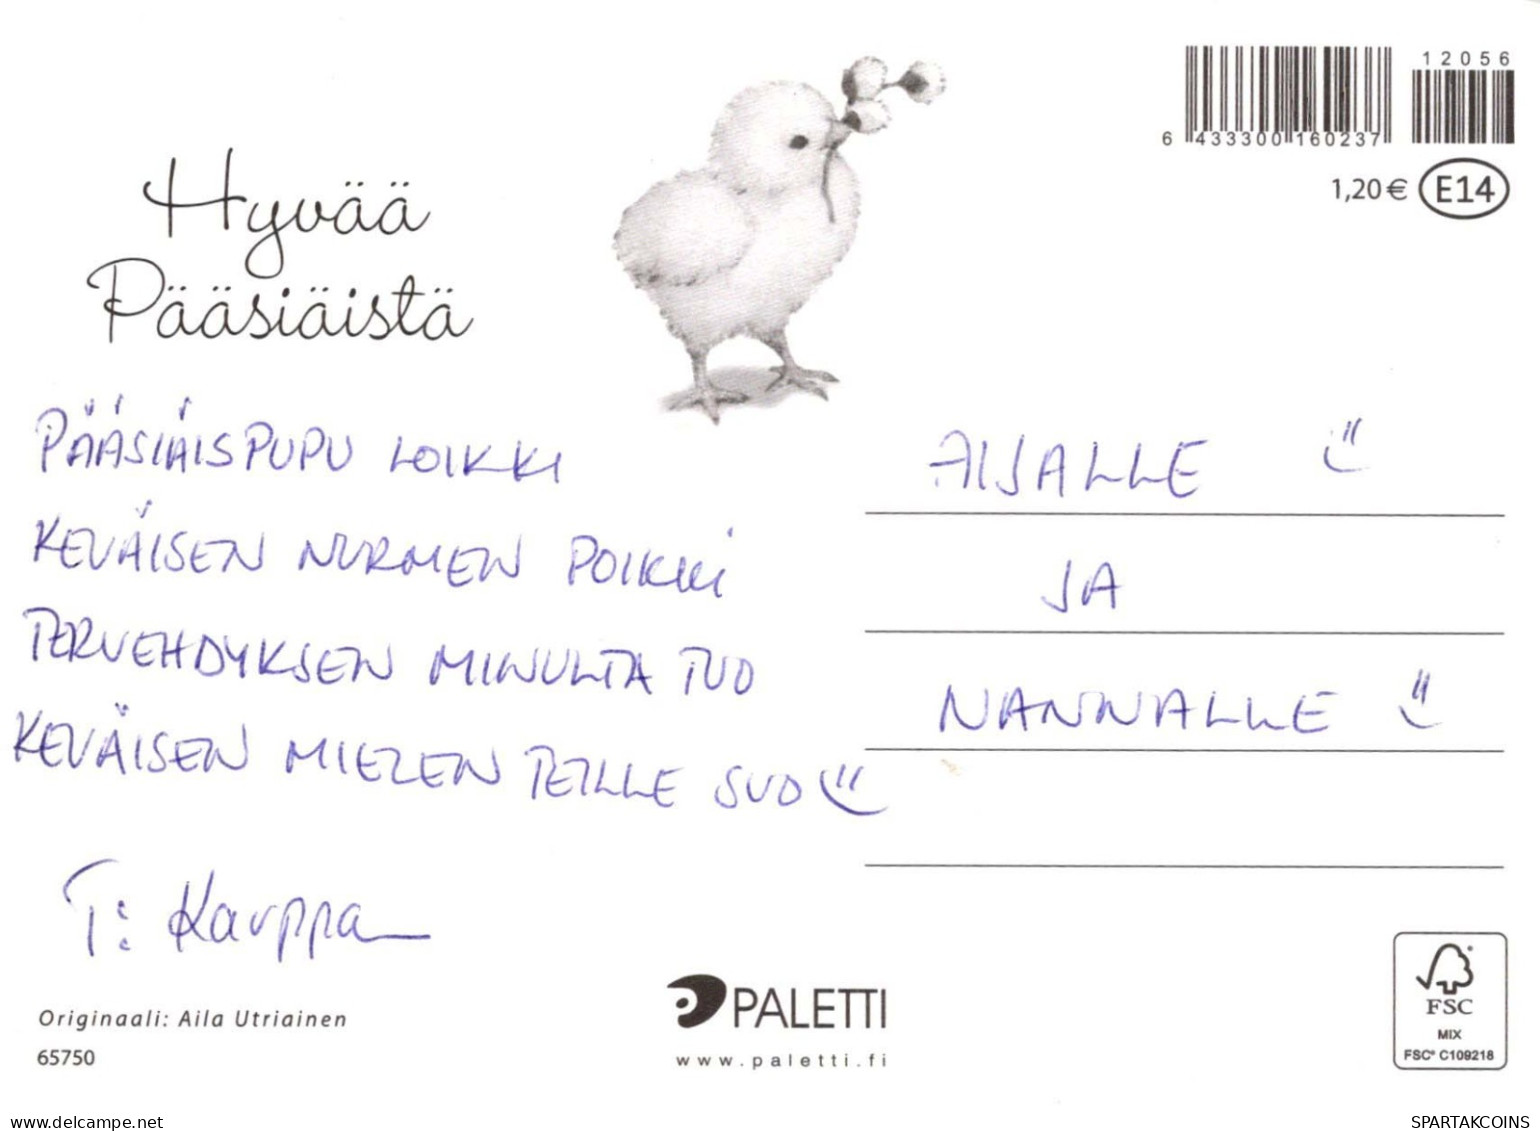 12056
6 433300 160237
1,20 € E14
Hyvää
Pääsiäistä
PÄÄSIÄISPUPU LOIKKI
KEVÄISEN NURMEN POIKKI
TERVEHDYKSEN MINULTA TUO
KEVÄISEN MIELEN TEILLE SUO
T: Kauppa
AIJALLE
JA
NANNALLE
Originaali: Aila Utriainen
65750
PALETTI
www.paletti.fi
FSC
MIX
FSC® C109218
oldthing.net
SPARTAKCOINS